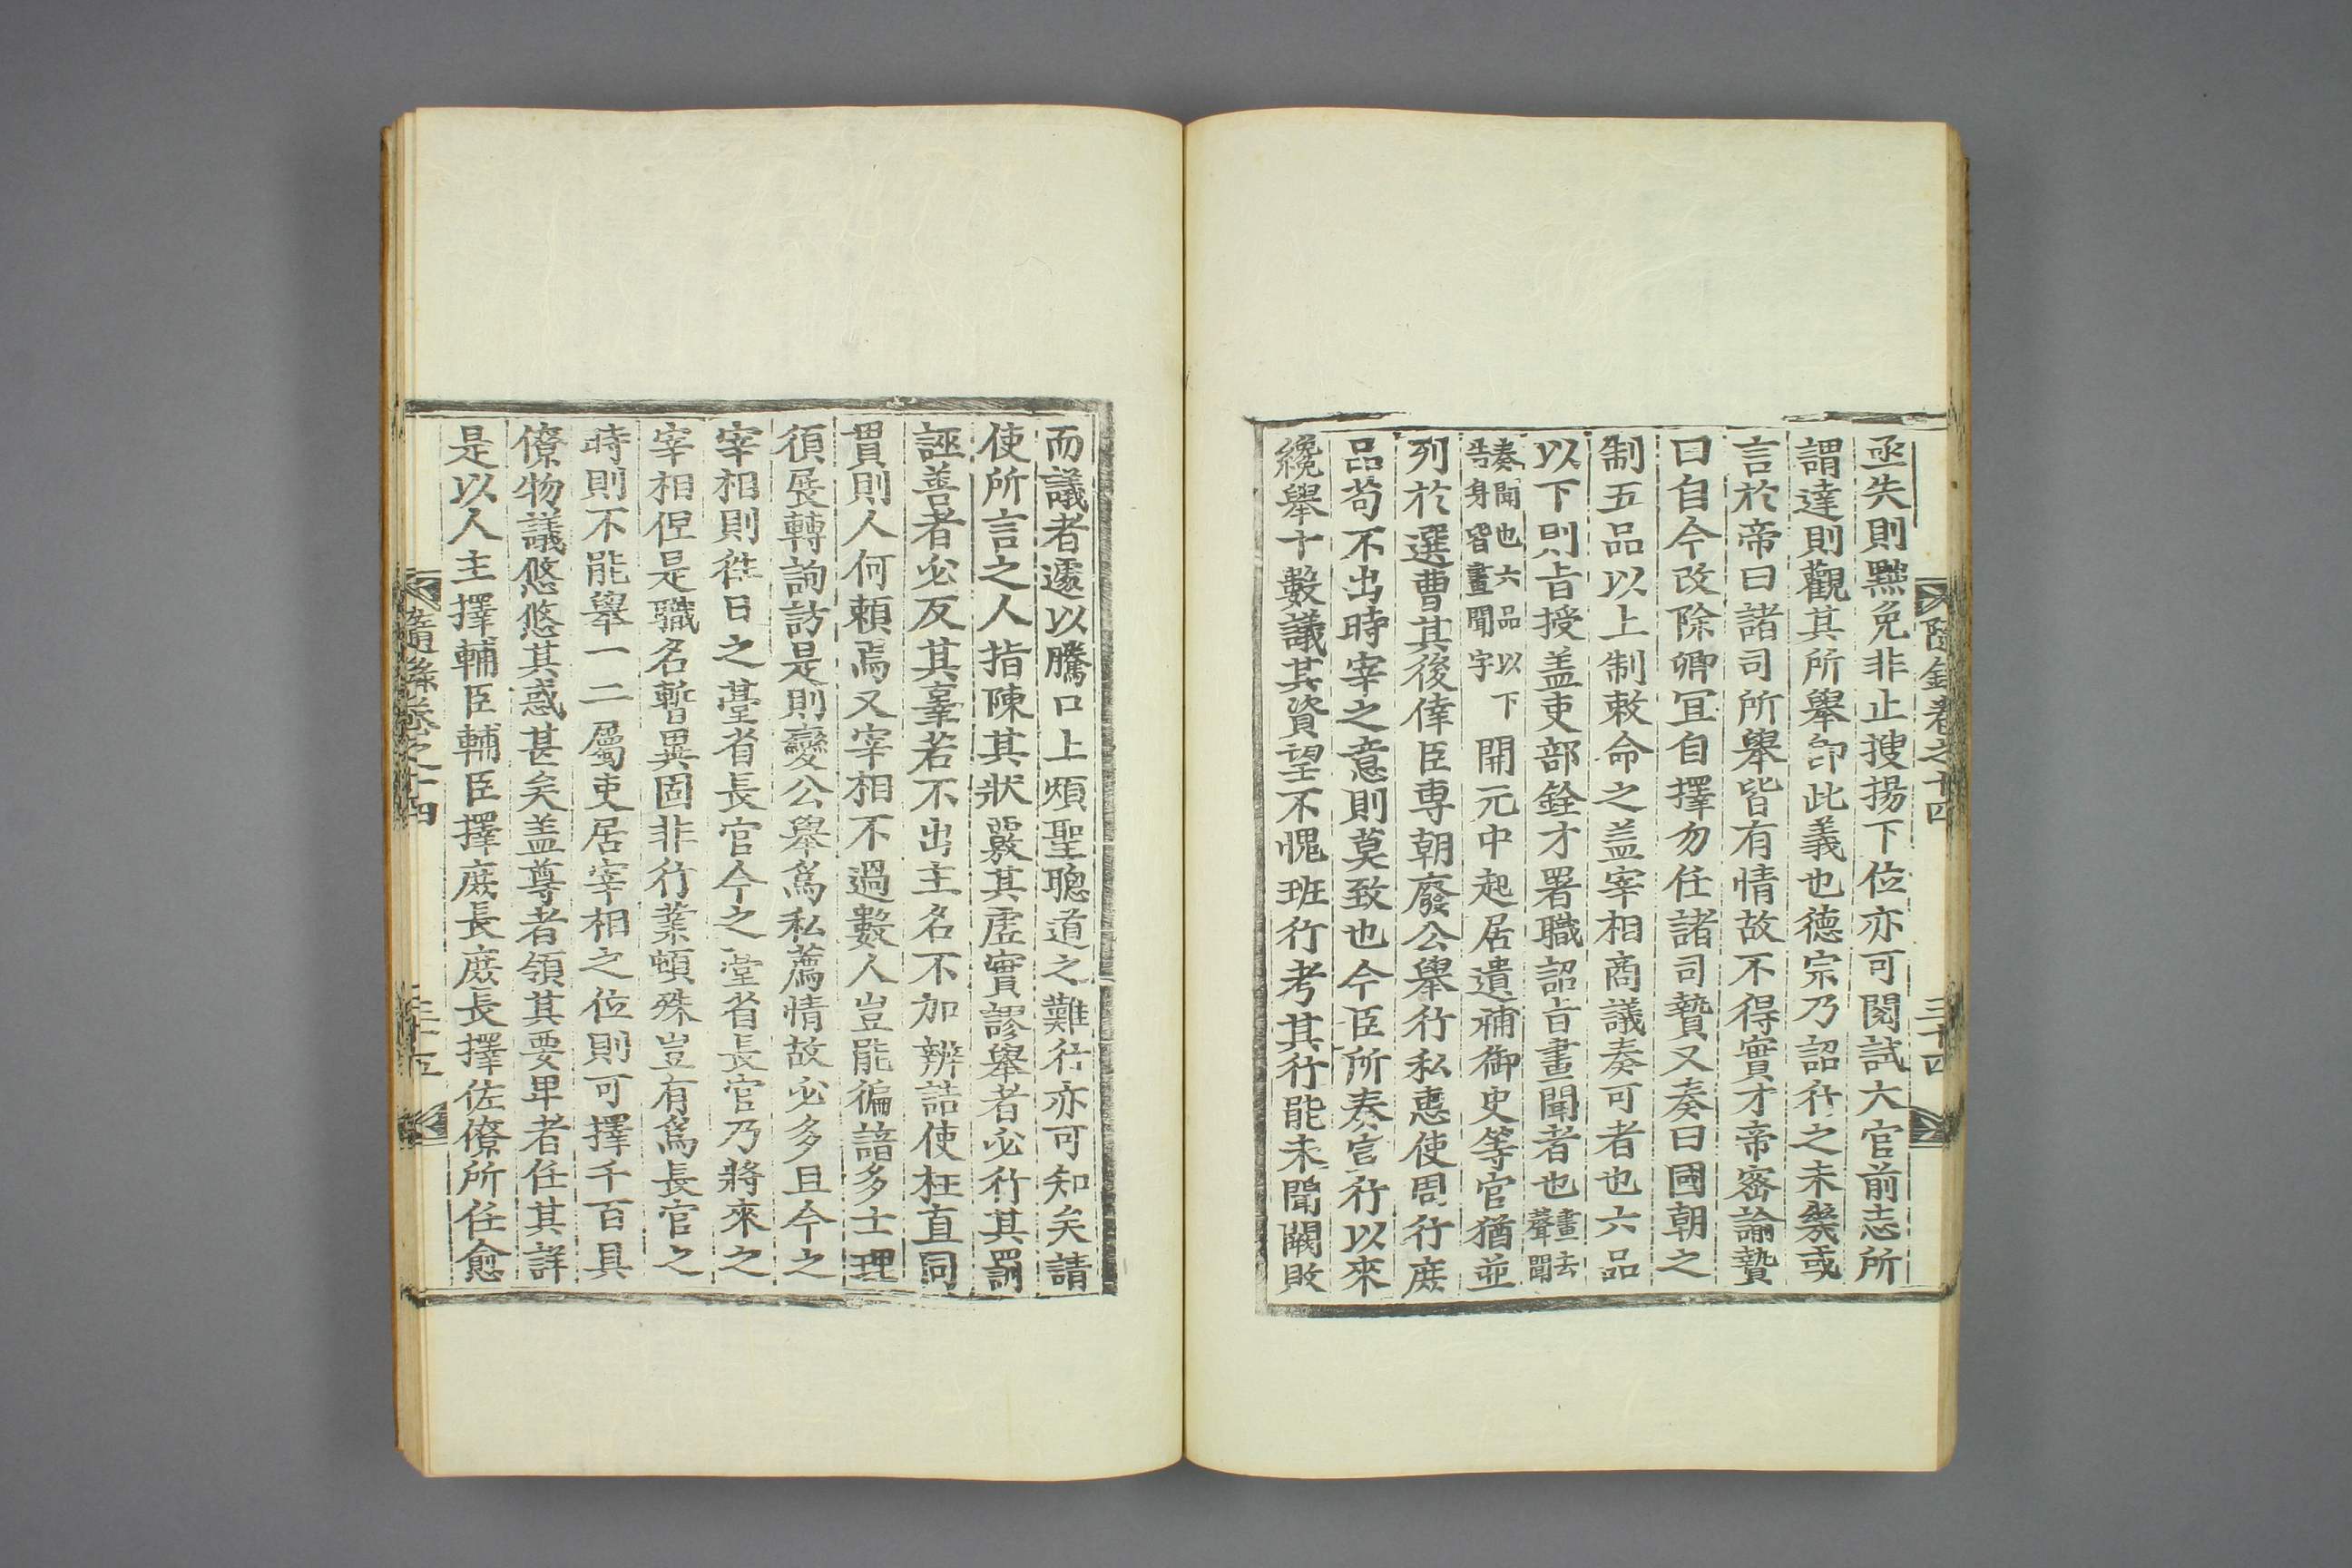 隨錄卷之十四 三十四
亟失則黜免非止搜揚下位亦可閱試大官前志所
謂達則觀其所舉卽此義也德宗乃詔行之未幾或
言於帝曰諸司所舉皆有情故不得實才帝密諭贄
曰自今改除卿宜自擇勿任諸司贄又奏曰國朝之
制五品以上制敕命之盖宰相商議奏可者也六品
以下則旨授盖吏部銓才署職詔旨畫聞者也畫去聲聞
奏聞也六品以下告身皆畫聞字開元中起居遺補御史等官猶並
列於選曹其後倖臣專朝廢公舉行私惠使周行庶
品苟不出時宰之意則莫致也今臣所奏宣行以來
纔舉十數議其資望不愧班行考其行能未聞闕敗
而議者遽以騰口上煩聖聰道之難行亦可知矣請
使所言之人指陳其狀覈其虛實謬舉者必行其罰
誣善者必反其辜若不出主名不加辨詰使枉直同
貫則人何賴焉又宰相不過數人豈能徧諳多士理
須展轉詢訪是則變公舉爲私薦情故必多且今之
宰相則徃日之臺省長官今之臺省長官乃將來之
宰相但是職名暫異固非行業頓殊豈有爲長官之
時則不能舉一二屬吏居宰相之位則可擇千百具
僚物議悠悠其惑甚矣盖尊者領其要卑者任其詳
是以人主擇輔臣輔臣擇庶長庶長擇佐僚所任愈
隨錄卷之十四 三十五